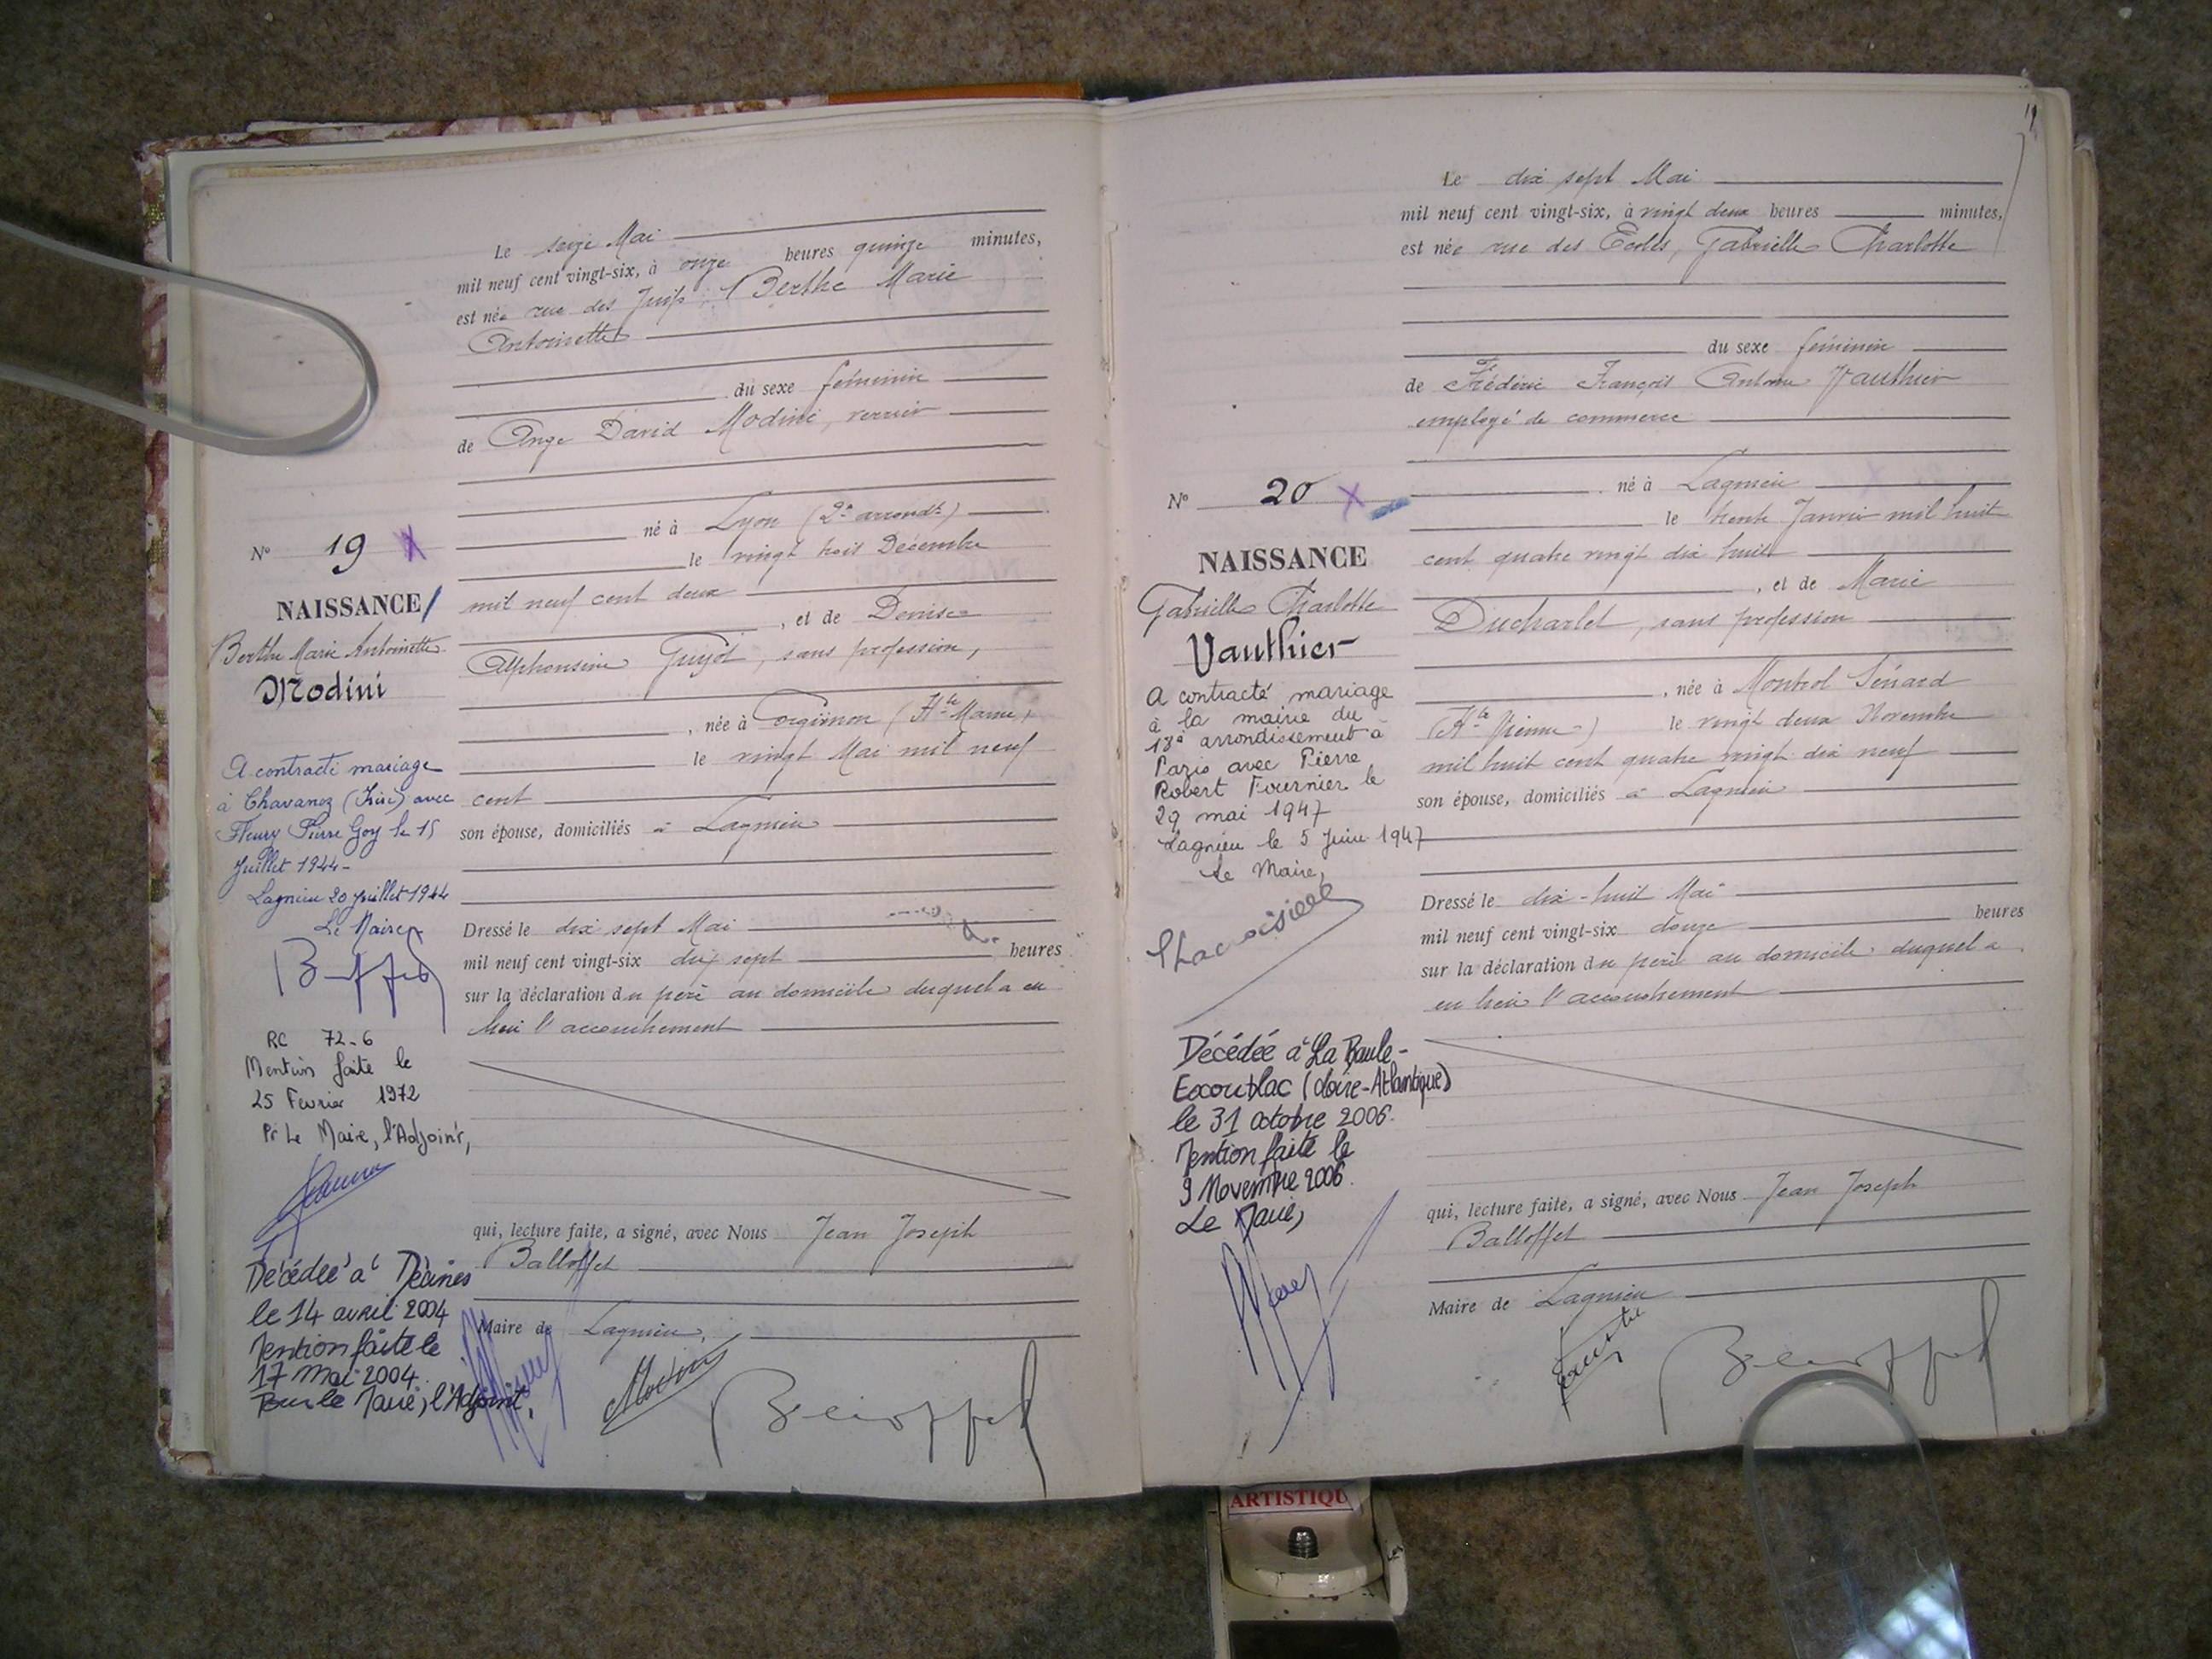 Le seize Mai
mil neuf cent vingt-six, à onze heures quinze minutes,
est née rue des Juifs, Berthe Marie
Antoinette
du sexe féminin
de Ange David Modini, verrier
N° 19
né à Lyon (2e arrondt)
le vingt trois Décembre
NAISSANCE
mil neuf cent deux
, et de Denise
Berthe Marie Antoinette
Modini
Alphonsine Guyot, sans profession,
, née à (Hte Marne)
le vingt Mai mil neuf
cent
son épouse, domiciliés à Lagnieu
A contracté mariage
à Chavanoz (Isère) avec
Fleury Pierre Goy le 15
Juillet 1944-
Lagnieu 20 juillet 1944
Le Maire
Dressé le dix sept Mai
mil neuf cent vingt-six dix sept heures
sur la déclaration du père au domicile duquel a eu
lieu l'accouchement
RC 72-6
Mention faite le
25 Fevrier 1972
Pr Le Maire, l'Adjoint,
qui, lecture faite, a signé, avec Nous Jean Joseph
Balloffet
Maire de Lagnieu,
Décédée à Décines
le 14 avril 2004
Mention faite le
17 Mai 2004.
Pour le Maire, l'Adjoint,
Modini
Le dix sept Mai
mil neuf cent vingt-six, à vingt deux heures minutes,
est née rue des Ecoles, Gabrielle Charlotte
du sexe féminin
de Frédéric François Antoine Vauthier
employé de commerce
N° 20
né à Lagnieu
le trente Janvier mil huit
NAISSANCE
cent quatre vingt dix huit
, et de Marie
Gabrielle Charlotte
Vauthier
Ducharlet, sans profession
, née à Montrol Sénard
(Hte Vienne) le vingt deux Novembre
mil huit cent quatre vingt dix neuf
son épouse, domiciliés à Lagnieu
A contracté mariage
à la mairie du
18e arrondissement à
Paris avec Pierre
Robert Fournier le
29 mai 1947
Lagnieu le 5 Juin 1947
Le Maire,
Dressé le dix-huit Mai
mil neuf cent vingt-six douze heures
sur la déclaration du père au domicile duquel a
eu lieu l'accouchement
Décédée à La Baule-
Escoublac (Loire-Atlantique)
le 31 octobre 2006.
Mention faite le
9 Novembre 2006.
Le Maire,
qui, lecture faite, a signé, avec Nous Jean Joseph
Balloffet
Maire de Lagnieu
ARTISTIQU